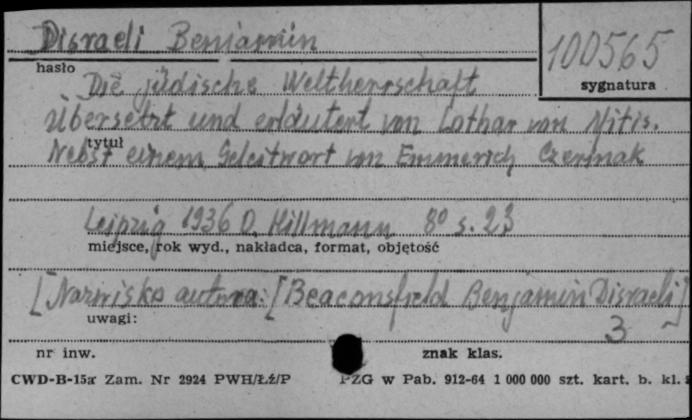 Disraeli Benjamin
100565
hasło
sygnatura
Die jüdische Weltherrschaft
Übersetzt und erläutert von Lothar von Nitis.
tytuł
Nebst einem Geleitwort von Emmerich Czermak
Leipzig 1936 O. Hillmann 8° s. 23
miejsce, rok wyd., nakładca, format, objętość
[Nazwisko autora: [Beaconsfield Benjamin Disraeli]
uwagi:
3
nr inw.
znak klas.
CWD-B-15a Zam. Nr 2924 PWH/Łź/P PZG w Pab. 912-64 1 000 000 szt. kart. b. kl.